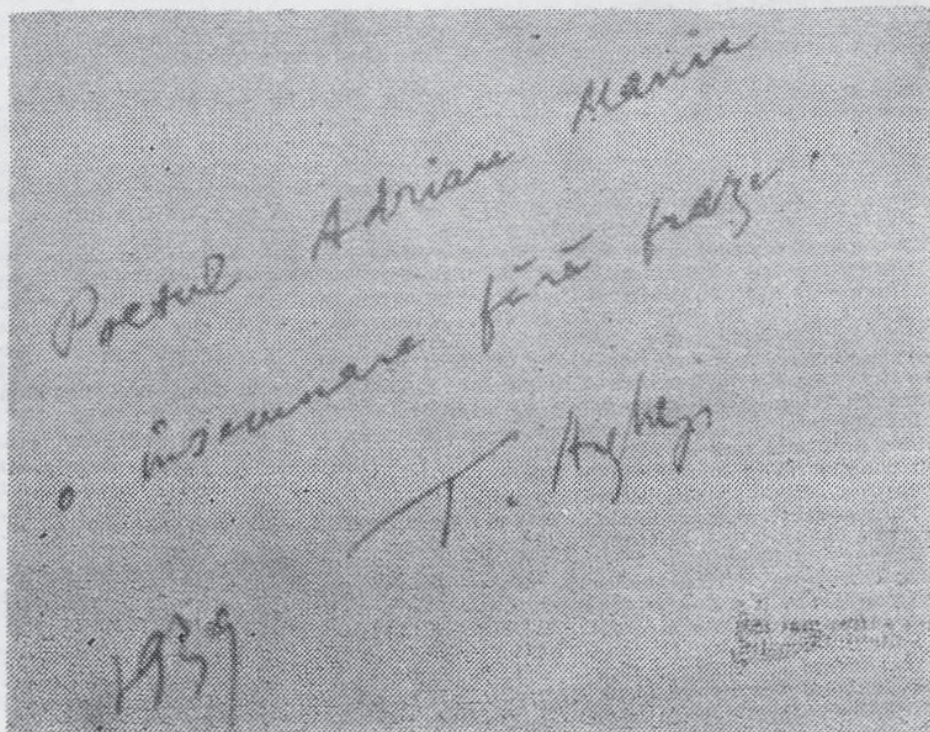 Poetul Adrian Maniu
o însemnare fără fraze.
T. Arghezi
1939